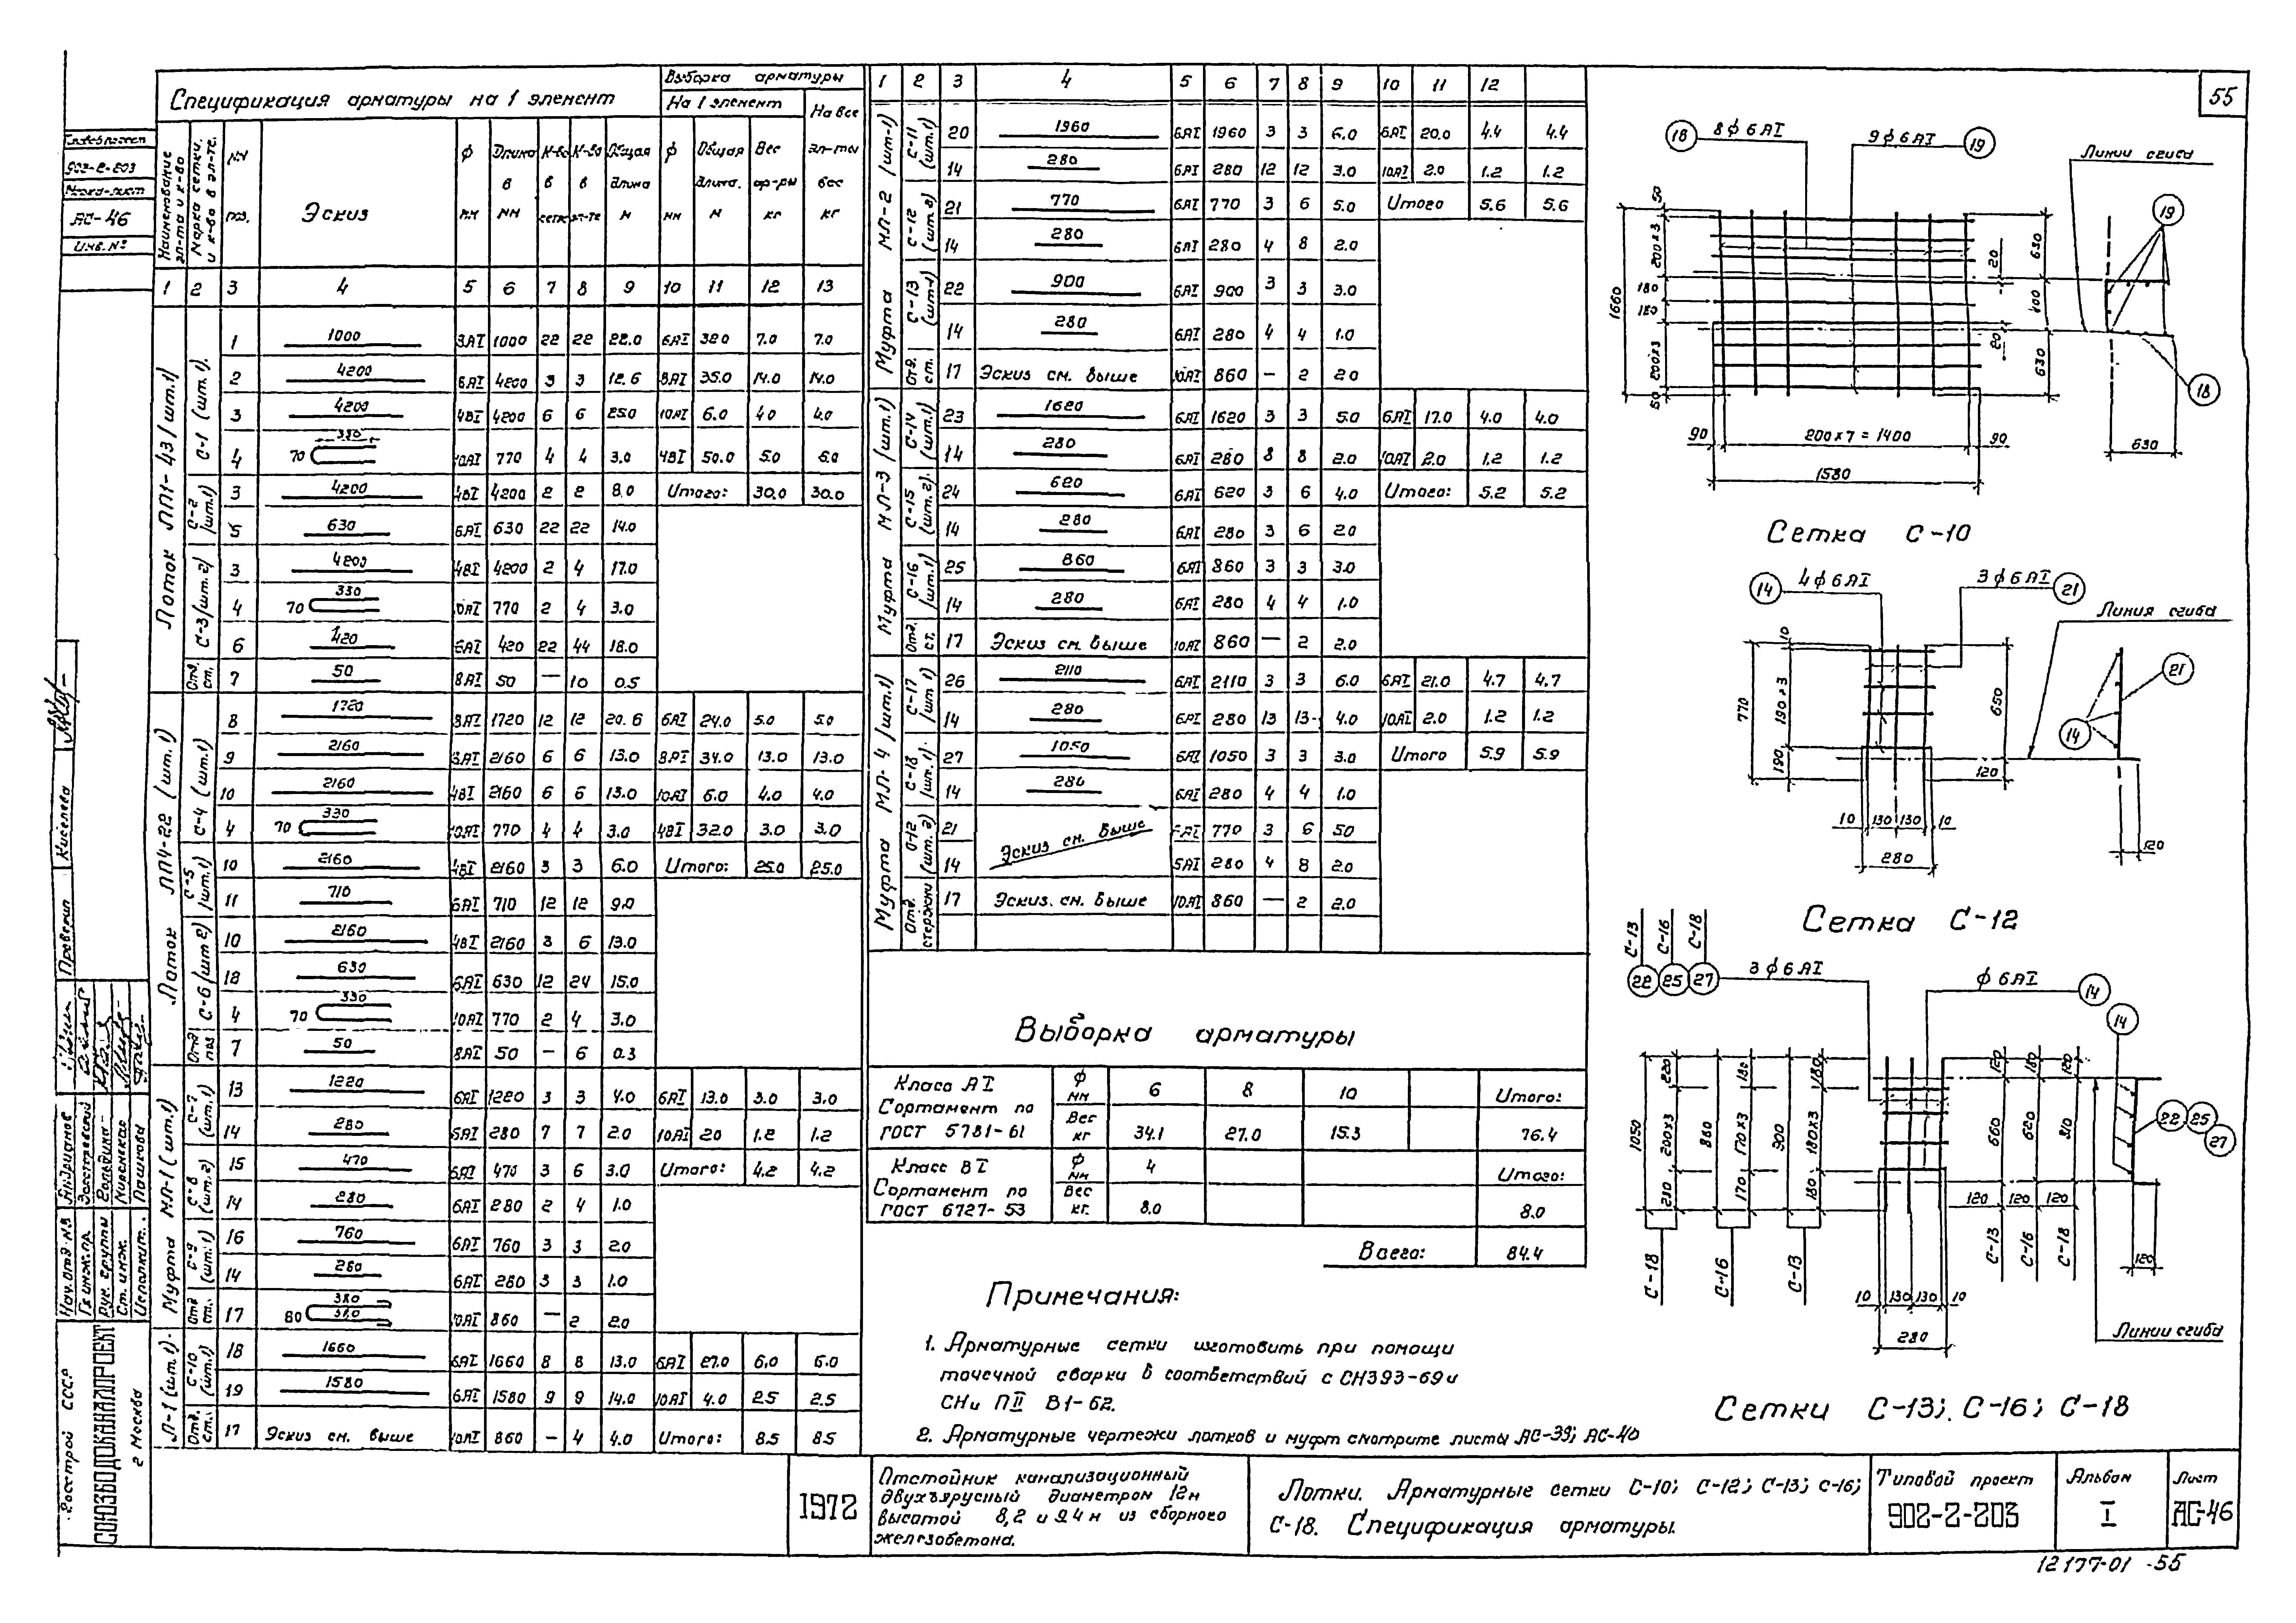 55
Спецификация арматуры на 1 элемент
Выборка арматуры
На 1 элемент
На все эл-ты вес кг
Наименование эл-та и к-во
Марка сетки, и к-ва в эл-те.
NN поз.
Эскиз
ф мм
Длина в мм
К-во в сетке
К-во в эл-те
Общая длина м
ф мм
Общая длина. м
Вес ар-ры кг
1 2 3 4 5 6 7 8 9 10 11 12 13
Лоток ЛП1-43 (шт.1)
С-1 (шт.1).
1 1000 8АI 1000 22 22 22.0 6АI 32.0 7.0 7.0
2 4200 6АI 4200 3 3 12.6 8АI 35.0 14.0 14.0
3 4200 4ВI 4200 6 6 25.0 10АI 6.0 4.0 4.0
4 70 330 10АI 770 4 4 3.0 4ВI 50.0 5.0 5.0
С-2 (шт.1)
3 4200 4ВI 4200 2 2 8.0 Итого: 30.0 30.0
5 630 6АI 630 22 22 14.0
С-3 (шт.2)
3 4200 4ВI 4200 2 4 17.0
4 70 330 10АI 770 2 4 3.0
6 420 6АI 420 22 44 18.0
Отд. ст.
7 50 8АI 50 — 10 0.5
Лоток ЛП4-22 (шт.1)
С-4 (шт.1)
8 1720 8АI 1720 12 12 20.6 6АI 24.0 5.0 5.0
9 2160 8АI 2160 6 6 13.0 8АI 34.0 13.0 13.0
10 2160 4ВI 2160 6 6 13.0 10АI 6.0 4.0 4.0
4 70 330 10АI 770 4 4 3.0 4ВI 32.0 3.0 3.0
С-5 (шт.1)
10 2160 4ВI 2160 3 3 6.0 Итого: 25.0 25.0
11 710 6АI 710 12 12 9.0
С-6 (шт 2)
10 2160 4ВI 2160 3 6 13.0
18 630 6АI 630 12 24 15.0
4 70 330 10АI 770 2 4 3.0
Отд поз
7 50 8АI 50 — 6 0.3
Муфта МЛ-1 (шт.1)
С-7 (шт.1)
13 1220 6АI 1220 3 3 4.0 6АI 13.0 3.0 3.0
14 280 6АI 280 7 7 2.0 10АI 20 1.2 1.2
С-8 (шт.2)
15 470 6АI 470 3 6 3.0 Итого: 4.2 4.2
14 280 6АI 280 2 4 1.0
С-9 (шт.1)
16 760 6АI 760 3 3 2.0
14 280 6АI 280 3 3 1.0
Отд ст.
17 80 380 380 10АI 860 — 2 2.0
Л-1 (шт.1).
С-10 (шт.1)
18 1660 6АI 1660 8 8 13.0 6АI 27.0 6.0 6.0
19 1580 6АI 1580 9 9 14.0 10АI 4.0 2.5 2.5
Отд. ст.
17 Эскиз см. выше 10АI 860 — 4 4.0 Итого: 8.5 8.5
1 2 3 4 5 6 7 8 9 10 11 12
Муфта МЛ-2 (шт-1)
С-11 (шт.1)
20 1960 6АI 1960 3 3 6.0 6АI 20.0 4.4 4.4
14 280 6АI 280 12 12 3.0 10АI 2.0 1.2 1.2
С-12 (шт.2)
21 770 6АI 770 3 6 5.0 Итого 5.6 5.6
14 280 6АI 280 4 8 2.0
С-13 (шт-1)
22 900 6АI 900 3 3 3.0
14 280 6АI 280 4 4 1.0
Отд. ст.
17 Эскиз см. выше 10АI 860 — 2 2.0
Муфта МЛ-3 (шт.1)
С-14 (шт.1)
23 1620 6АI 1620 3 3 5.0 6АI 17.0 4.0 4.0
14 280 6АI 280 8 8 2.0 10АI 2.0 1.2 1.2
С-15 (шт.2).
24 620 6АI 620 3 6 4.0 Итого: 5.2 5.2
14 280 6АI 280 3 6 2.0
С-16 (шт.1)
25 860 6АI 860 3 3 3.0
14 280 6АI 280 4 4 1.0
Отд. ст.
17 Эскиз см. выше 10АI 860 — 2 2.0
Муфта МЛ-4 (шт.1)
С-17 (шт 1)
26 2110 6АI 2110 3 3 6.0 6АI 21.0 4.7 4.7
14 280 6АI 280 13 13 4.0 10АI 2.0 1.2 1.2
С-18 (шт.1).
27 1050 6АI 1050 3 3 3.0 Итого 5.9 5.9
14 280 6АI 280 4 4 1.0
С-12 (шт.2)
21 Эскиз см. выше 6АI 770 3 6 5.0
14 6АI 280 4 8 2.0
Отд. стержни
17 Эскиз. см. выше 10АI 860 — 2 2.0
Выборка арматуры
Класс АI Сортамент по ГОСТ 5781-61
ф мм 6 8 10 Итого:
Вес кг 34.1 27.0 15.3 76.4
Класс ВI Сортамент по ГОСТ 6727-53
ф мм 4 Итого:
Вес кг. 8.0 8.0
Всего: 84.4
Примечания:
1. Арматурные сетки изготовить при помощи
точечной сварки в соответствий с СН393-69 и
СНи ПII В1-62.
2. Арматурные чертежи лотков и муфт смотрите листы АС-39; АС-40
18 8ф6АI 9ф6АI 19
Линии сгиба
50 200×3 180 180 200×3 50 1660
20 20 630 400 630
90 200×7=1400 90
1580
19 18 630
Сетка С-10
14 4ф6АI 3ф6АI 21
Линия сгиба
10 190×3 190 770
650 120
10 130 130 10
280
21 14 120
Сетка С-12
С-13 С-16 С-18
22 25 27 3ф6АI ф6АI 14
1050 220 200×3 230
880 180 170×3 170
900 180 180×3 180
120 180 120
660 620 810
120 120 120
С-18 С-16 С-13 С-13 С-16 С-18
10 130 130 10
280
14 22 25 27 120
Линии сгиба
Сетки С-13; С-16; С-18
1972
Отстойник канализационный
двухъярусный диаметром 12м
высотой 8,2 и 9.4 м из сборного
железобетона.
Лотки. Арматурные сетки С-10; С-12; С-13; С-16;
С-18. Спецификация арматуры.
Типовой проект
902-2-203
Альбом
I
Лист
АС-46
12177-01 -55
902-2-203
Марка-лист
АС-46
Инв. №
Проверил Киселева
Рук. группы
Ст. инж.
Исполнит. Пашкова
Госстрой СССР
СОЮЗВОДОКАНАЛПРОЕКТ
г Москва